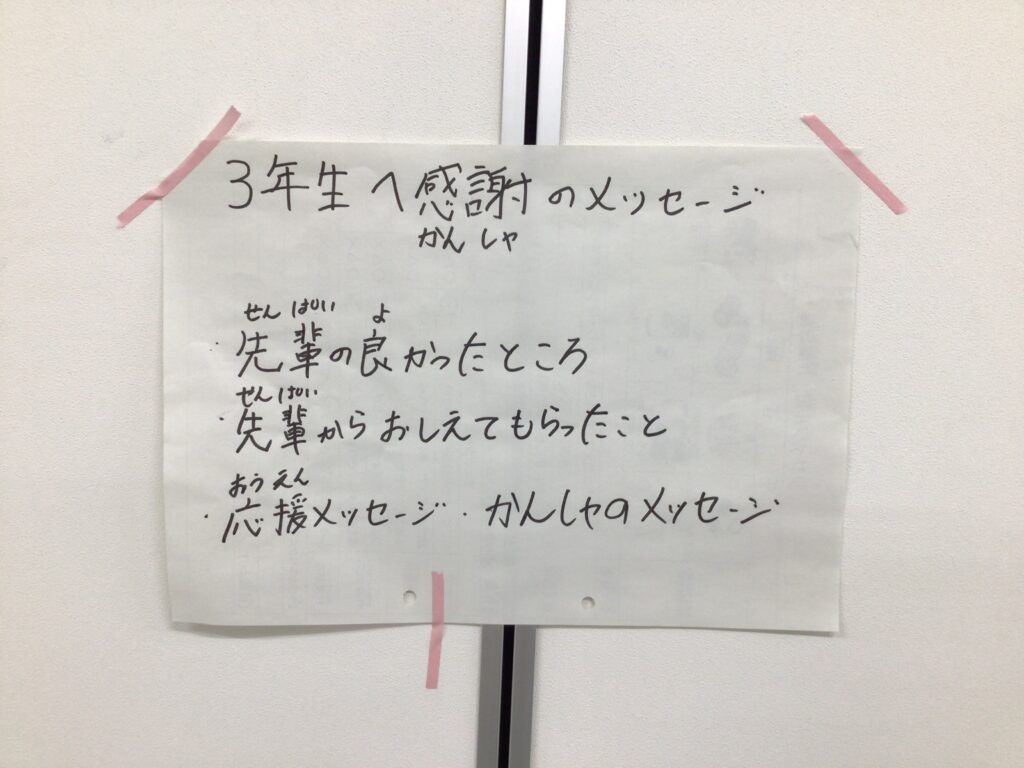 3年生へ感謝のメッセージ
かんしゃ
せんぱい よ
・先輩の良かったところ
せんぱい
・先輩からおしえてもらったこと
おうえん
・応援メッセージ・かんしゃのメッセージ